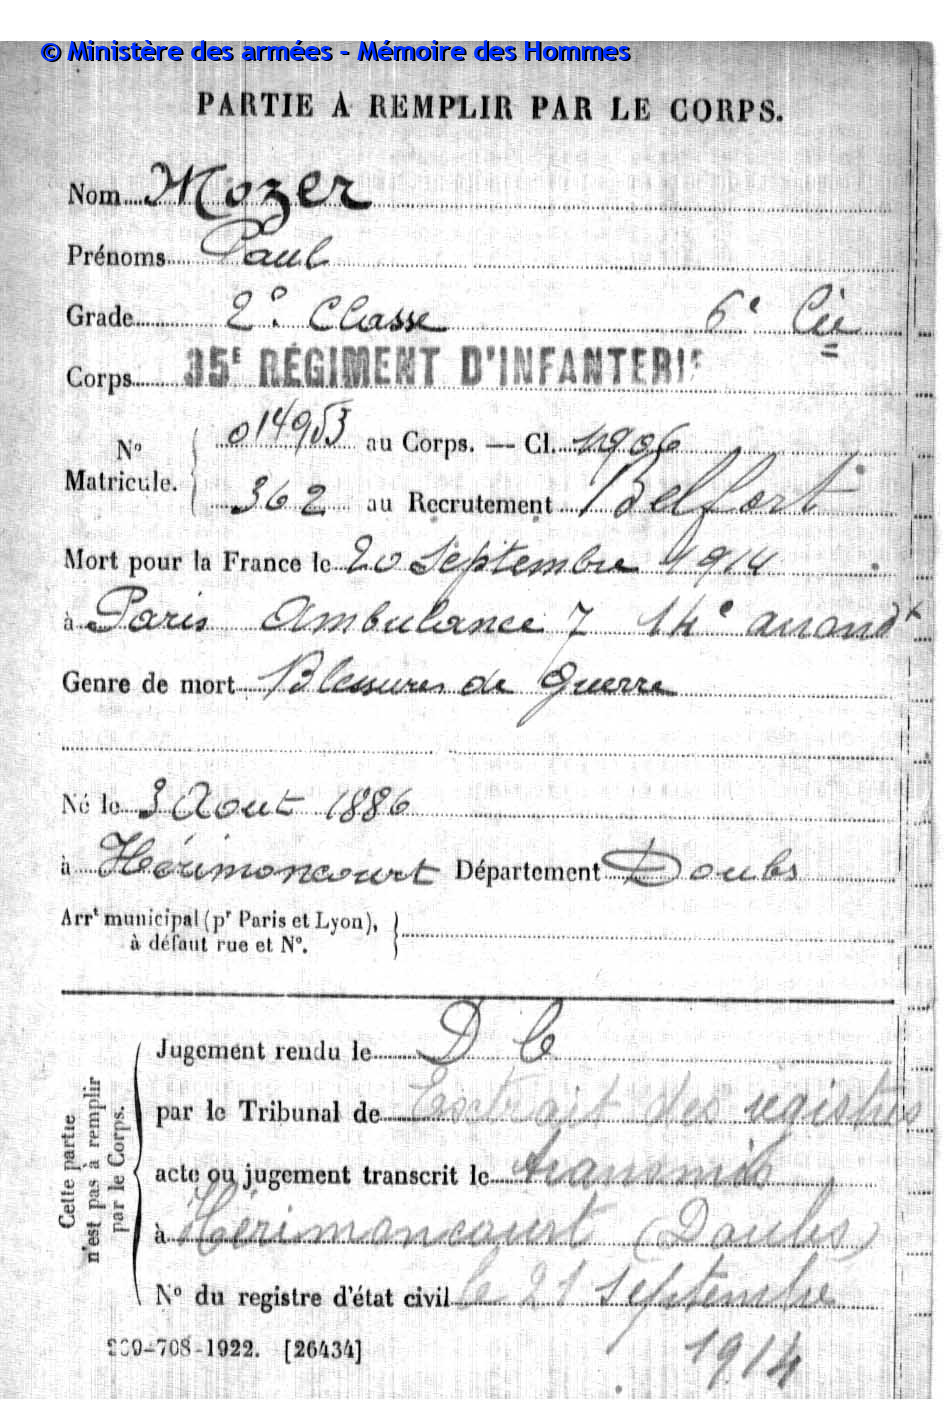 © Ministère des armées - Mémoire des Hommes
PARTIE À REMPLIR PAR LE CORPS.
Nom Mozer
Prénoms Paul
Grade 2e Classe 6e Cie
Corps 35E RÉGIMENT D'INFANTERIE
No Matricule. { 014953 au Corps. — Cl. 1906
362 au Recrutement Belfort
Mort pour la France le 20 Septembre 1914
à Paris Ambulance 7 14e arrondt
Genre de mort Blessures de guerre
Né le 3 Aout 1886
à Hérimoncourt Département Doubs
Arrt municipal (pr Paris et Lyon),
à défaut rue et No.
Cette partie
n'est pas à remplir
par le Corps.
Jugement rendu le D C
par le Tribunal de Extrait des registres
acte ou jugement transcrit le transmis
à Hérimoncourt (Doubs)
No du registre d'état civil le 21 Septembre
1914
-708-1922. [26434]